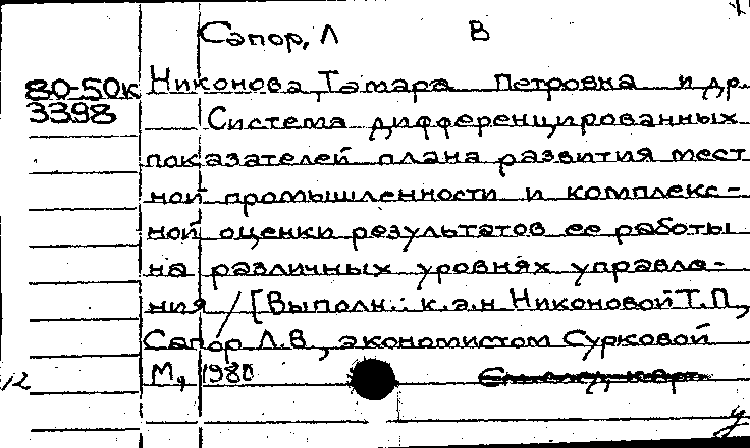 Сапор, Л В
80-50к Никонова, Тамара Петровна и др.
3398 Система дифференцированных
показателей плана развития мест
ной промышленности и комплекс-
ной оценки результатов ее работы
на различных уровнях управле-
ния / [Выполн.: к.э.н Никоновой Т.П,
Сапор Л.В, экономистом Сурковой
М, 1980
12
у